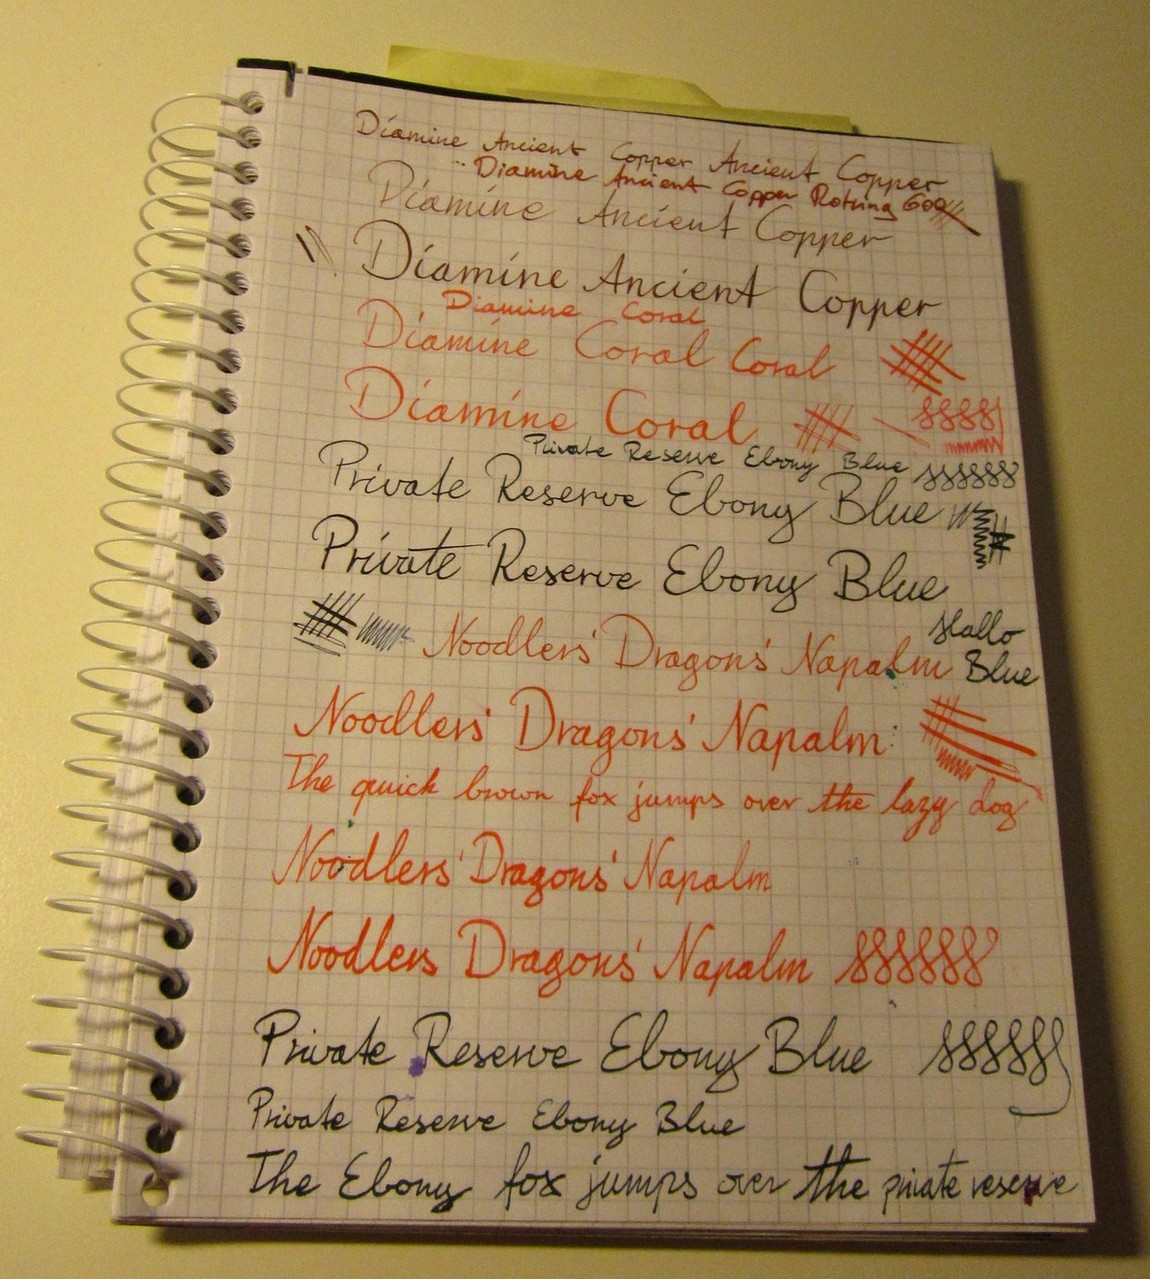 Diamine Ancient Copper Ancient Copper
Diamine Ancient Copper Rotring 600
Diamine Ancient Copper
Diamine Ancient Copper
Diamine Coral
Diamine Coral Coral
Diamine Coral
Private Reserve Ebony Blue
Private Reserve Ebony Blue
Private Reserve Ebony Blue
Hallo
Noodlers' Dragons' Napalm Blue
Noodlers' Dragons' Napalm:
The quick brown fox jumps over the lazy dog
Noodlers' Dragons' Napalm
Noodlers Dragons' Napalm
Private Reserve Ebony Blue
Private Reserve Ebony Blue
The Ebony fox jumps over the private reserve